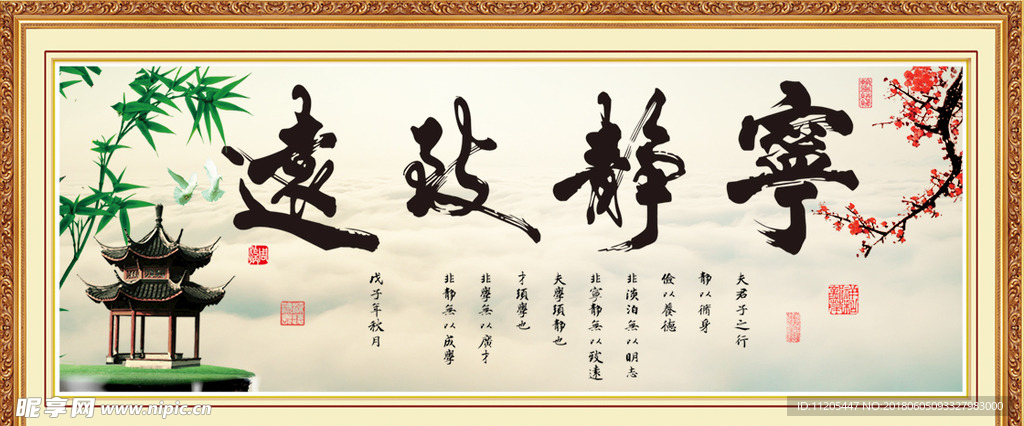 寧靜致遠
夫君子之行
靜以脩身
儉以養德
非淡泊無以明志
非寧靜無以致遠
夫學須靜也
才須學也
非學無以廣才
非靜無以成學
戊子年秋月
昵享网 www.nipic.cn
ID:11205447 NO:20180605093327983000